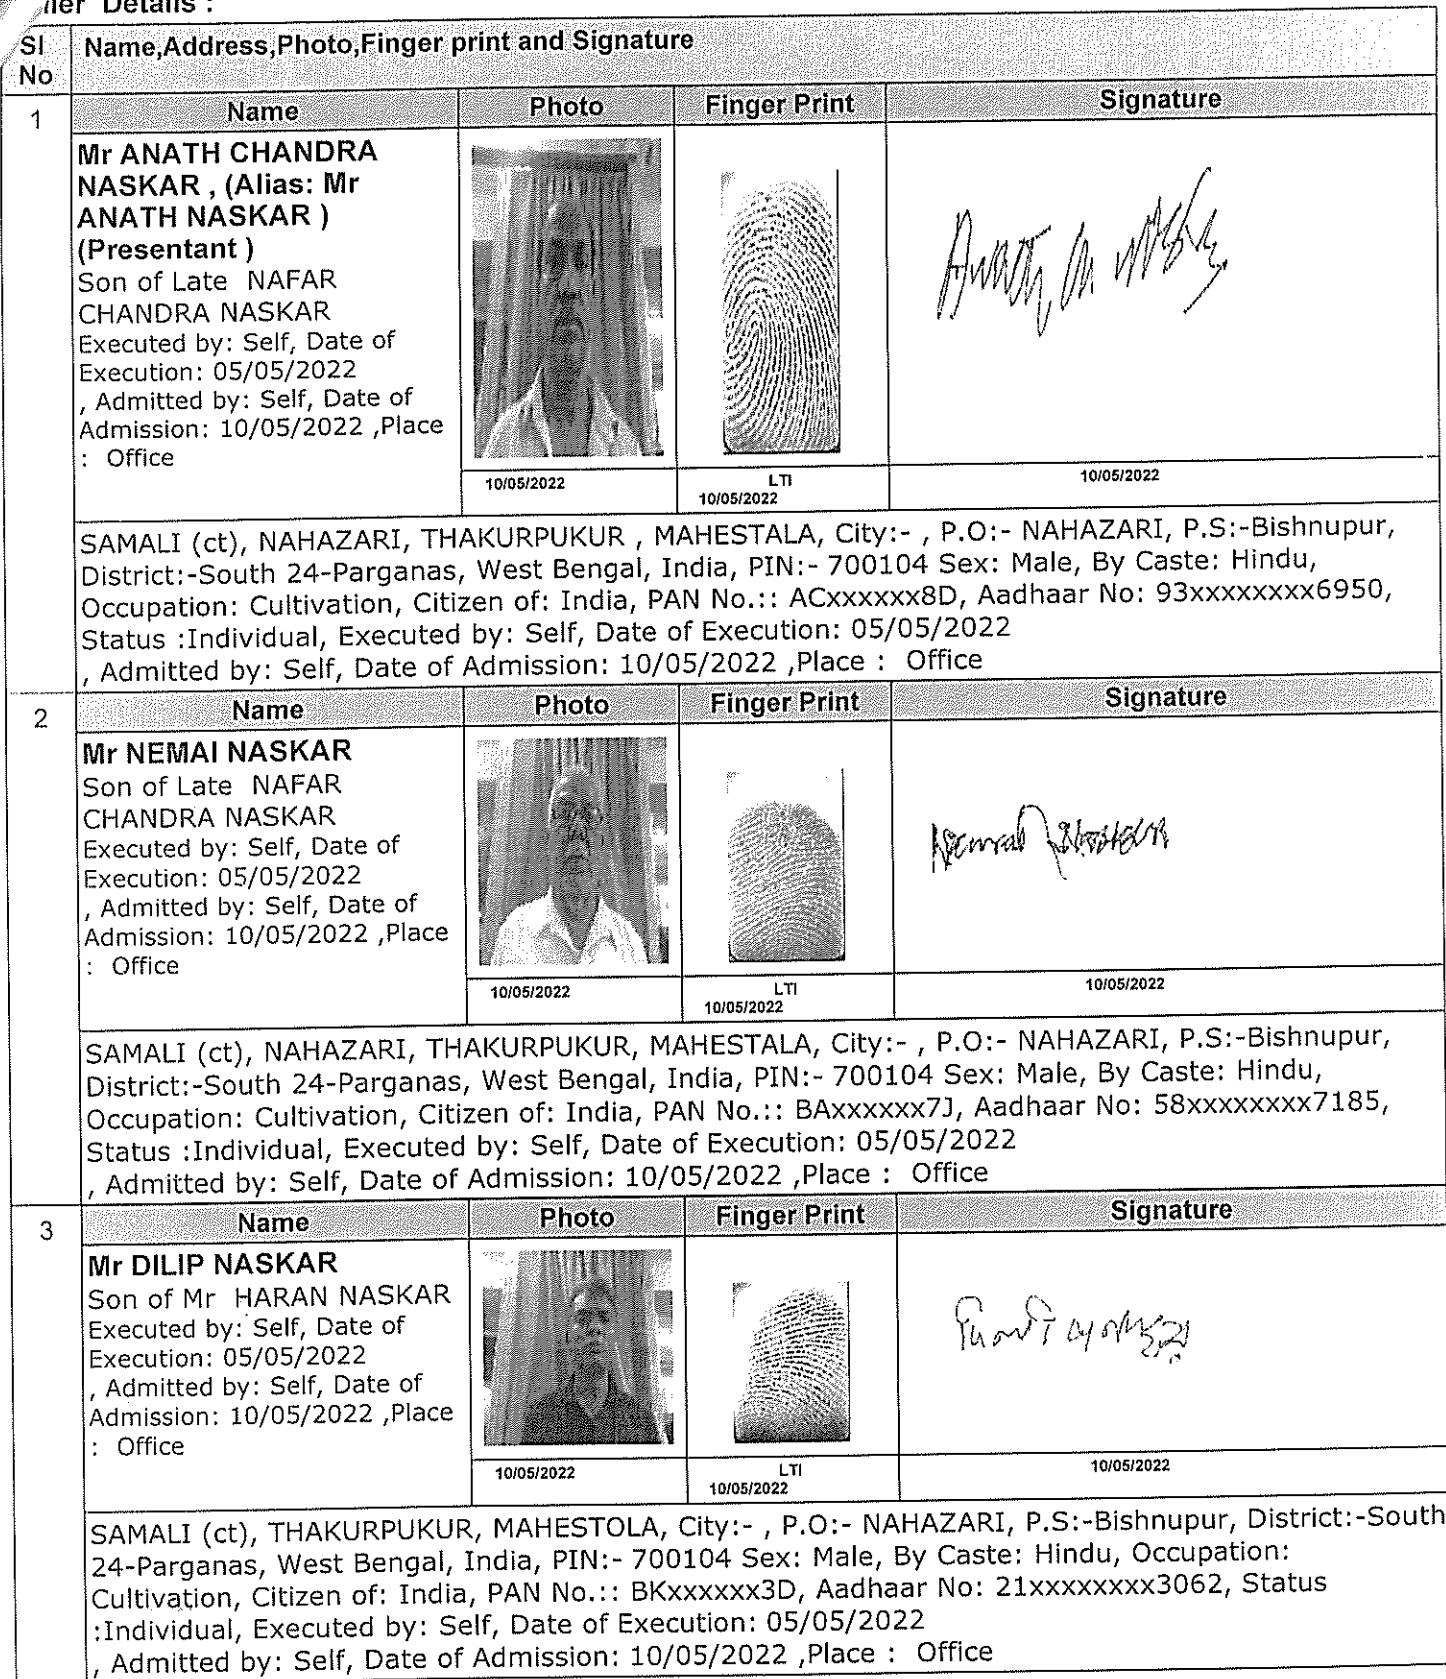 Details :
Sl No
Name,Address,Photo,Finger print and Signature
1
Name
Photo
Finger Print
Signature
Mr ANATH CHANDRA
NASKAR , (Alias: Mr
ANATH NASKAR )
(Presentant )
Son of Late NAFAR
CHANDRA NASKAR
Executed by: Self, Date of
Execution: 05/05/2022
, Admitted by: Self, Date of
Admission: 10/05/2022 ,Place
: Office
10/05/2022
LTI
10/05/2022
10/05/2022
SAMALI (ct), NAHAZARI, THAKURPUKUR , MAHESTALA, City:- , P.O:- NAHAZARI, P.S:-Bishnupur,
District:-South 24-Parganas, West Bengal, India, PIN:- 700104 Sex: Male, By Caste: Hindu,
Occupation: Cultivation, Citizen of: India, PAN No.:: ACxxxxxx8D, Aadhaar No: 93xxxxxxxx6950,
Status :Individual, Executed by: Self, Date of Execution: 05/05/2022
, Admitted by: Self, Date of Admission: 10/05/2022 ,Place : Office
2
Name
Photo
Finger Print
Signature
Mr NEMAI NASKAR
Son of Late NAFAR
CHANDRA NASKAR
Executed by: Self, Date of
Execution: 05/05/2022
, Admitted by: Self, Date of
Admission: 10/05/2022 ,Place
: Office
Nemai Naskar
10/05/2022
LTI
10/05/2022
10/05/2022
SAMALI (ct), NAHAZARI, THAKURPUKUR, MAHESTALA, City:- , P.O:- NAHAZARI, P.S:-Bishnupur,
District:-South 24-Parganas, West Bengal, India, PIN:- 700104 Sex: Male, By Caste: Hindu,
Occupation: Cultivation, Citizen of: India, PAN No.:: BAxxxxxx7J, Aadhaar No: 58xxxxxxxx7185,
Status :Individual, Executed by: Self, Date of Execution: 05/05/2022
, Admitted by: Self, Date of Admission: 10/05/2022 ,Place : Office
3
Name
Photo
Finger Print
Signature
Mr DILIP NASKAR
Son of Mr HARAN NASKAR
Executed by: Self, Date of
Execution: 05/05/2022
, Admitted by: Self, Date of
Admission: 10/05/2022 ,Place
: Office
10/05/2022
LTI
10/05/2022
10/05/2022
SAMALI (ct), THAKURPUKUR, MAHESTOLA, City:- , P.O:- NAHAZARI, P.S:-Bishnupur, District:-South
24-Parganas, West Bengal, India, PIN:- 700104 Sex: Male, By Caste: Hindu, Occupation:
Cultivation, Citizen of: India, PAN No.:: BKxxxxxx3D, Aadhaar No: 21xxxxxxxx3062, Status
:Individual, Executed by: Self, Date of Execution: 05/05/2022
, Admitted by: Self, Date of Admission: 10/05/2022 ,Place : Office